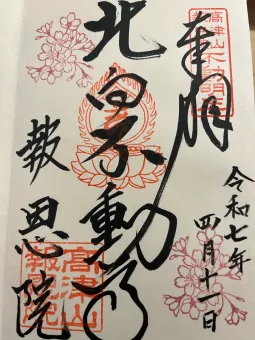 奉拝
令和七年
四月十一日
北向不動尊
報恩院
高津山
報恩院